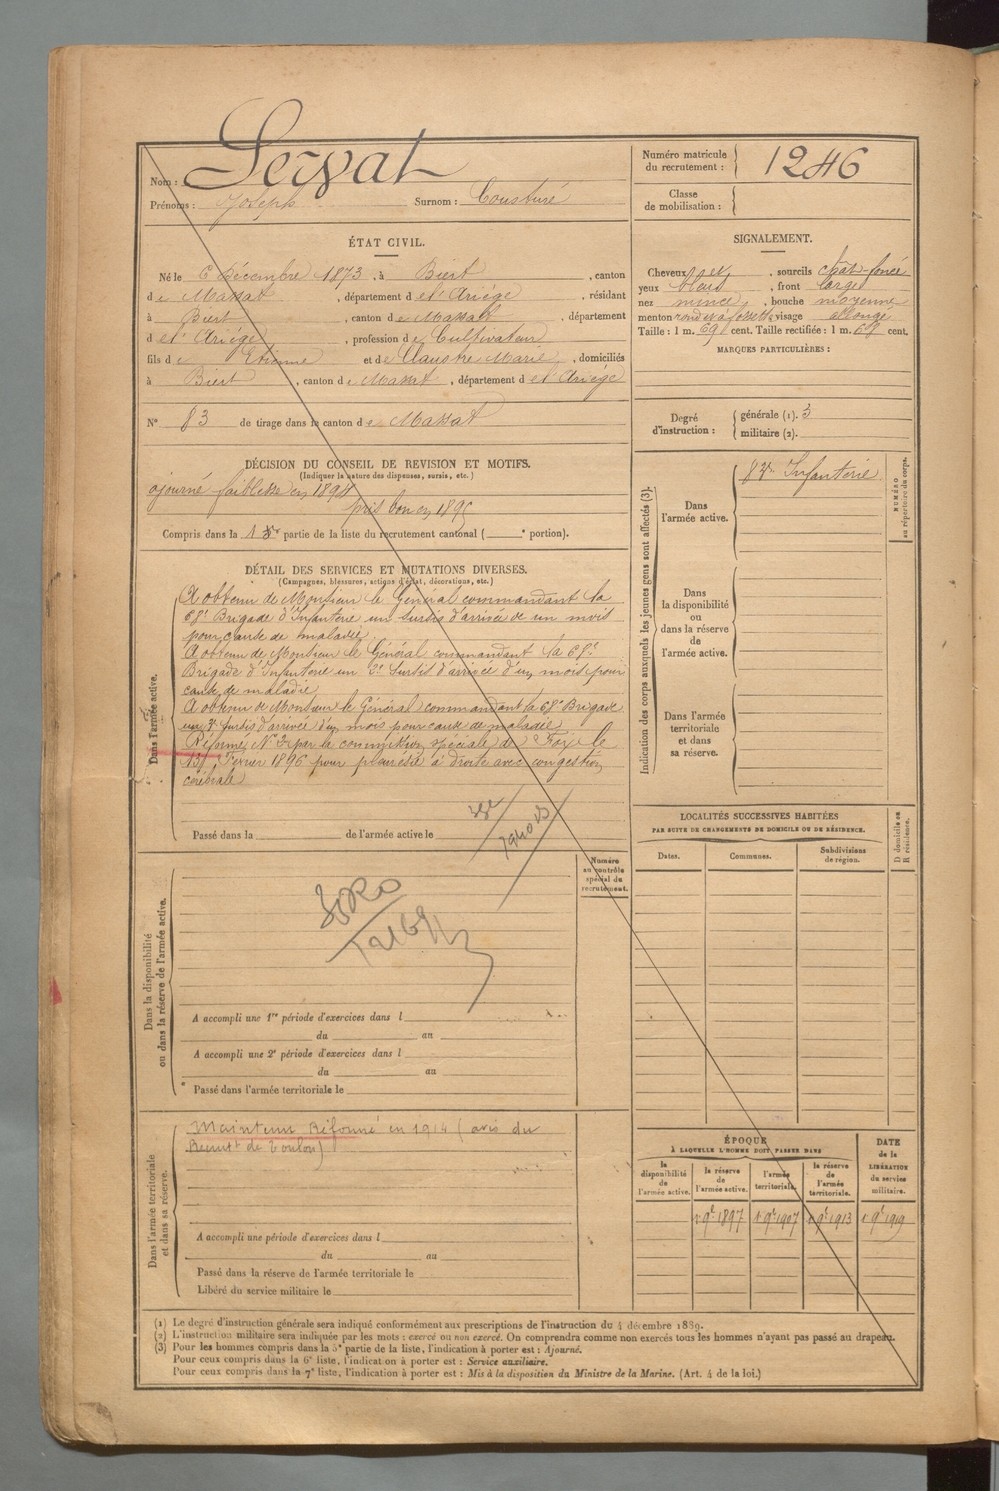 Nom : Servat
Prénoms : Joseph Surnom : Cousturé
Numéro matricule du recrutement : 1246
Classe de mobilisation :
ÉTAT CIVIL.
Né le 6 Décembre 1873, à Biert, canton
de Massat, département de l'Ariège, résidant
à Biert, canton de Massat, département
de l'Ariège, profession de Cultivateur
fils de Etienne et de Claustre Marie, domiciliés
à Biert, canton de Massat, département de l'Ariège
N° 83 de tirage dans le canton de Massat
SIGNALEMENT.
Cheveux et, sourcils chât-foncé
yeux bleus, front large
nez mince, bouche moyenne
menton rond et à fossette visage allongé
Taille : 1 m. 69 cent. Taille rectifiée : 1 m. 69 cent.
MARQUES PARTICULIÈRES :
Degré d'instruction :
générale (1). 3
militaire (2).
DÉCISION DU CONSEIL DE REVISION ET MOTIFS.
(Indiquer la nature des dispenses, sursis, etc.)
ajourné faiblesse en 1894
pris bon en 1895
Compris dans la 1re partie de la liste du recrutement cantonal ( e portion).
DÉTAIL DES SERVICES ET MUTATIONS DIVERSES.
(Campagnes, blessures, actions d'éclat, décorations, etc.)
Dans l'armée active.
A obtenu de Monsieur le Général commandant la
68e Brigade d'Infanterie un sursis d'arrivée de un mois
pour cause de maladie.
A obtenu de Monsieur le Général commandant la 68e
Brigade d'Infanterie un 2e Sursis d'arrivée d'un mois pour
cause de maladie
A obtenu de Monsieur le Général commandant la 68e Brigade
un 3e Sursis d'arrivée d'un mois pour cause de maladie
Réformé N° 2 par la commission spéciale de Foix le
13 Février 1896 pour pleurésie à droite avec congestion
cérébrale
Passé dans la de l'armée active le
Indication des corps auxquels les jeunes gens sont affectés (3).
Dans l'armée active.
83e Infanterie
NUMÉRO au répertoire du corps.
Dans la disponibilité ou dans la réserve de l'armée active.
Dans l'armée territoriale et dans sa réserve.
LOCALITÉS SUCCESSIVES HABITÉES
PAR SUITE DE CHANGEMENTS DE DOMICILE OU DE RÉSIDENCE.
Dates. Communes. Subdivisions de région.
D domicile ou R résidence.
Numéro au contrôle spécial du recrutement.
Dans la disponibilité ou dans la réserve de l'armée active.
A accompli une 1re période d'exercices dans l
du au
A accompli une 2e période d'exercices dans l
du au
Passé dans l'armée territoriale le
Dans l'armée territoriale et dans sa réserve.
Maintenu Réformé en 1914 (avis du
Recrutt de Toulon)
A accompli une période d'exercices dans l
du au
Passé dans la réserve de l'armée territoriale le
Libéré du service militaire le
ÉPOQUE
À LAQUELLE L'HOMME DOIT PASSER DANS
la disponibilité de l'armée active.
la réserve de l'armée active.
l'armée territoriale.
la réserve de l'armée territoriale.
DATE de la LIBÉRATION du service militaire.
1 9e 1897 1 9e 1907 1 9e 1913 1 9e 1919
(1) Le degré d'instruction générale sera indiqué conformément aux prescriptions de l'instruction du 4 décembre 1889.
(2) L'instruction militaire sera indiquée par les mots : exercé ou non exercé. On comprendra comme non exercés tous les hommes n'ayant pas passé au drapeau.
(3) Pour les hommes compris dans la 5e partie de la liste, l'indication à porter est : Ajourné.
Pour ceux compris dans la 6e liste, l'indication à porter est : Service auxiliaire.
Pour ceux compris dans la 7e liste, l'indication à porter est : Mis à la disposition du Ministre de la Marine. (Art. 4 de la loi.)